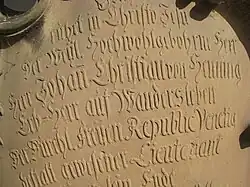 ruhet in Christo Jesu
Der Weil. Hochwohlgebohrne Herr
Herr Johan Christian von Hennig
Erb-Herr auf Wandersleben
Der Durchl. freyen Republic Venetia
gewesener Lieutenant
Ende